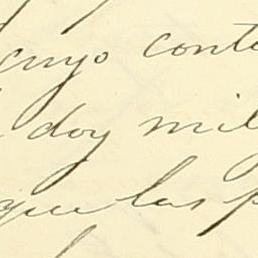 cuyo conte
doy mil
que las p